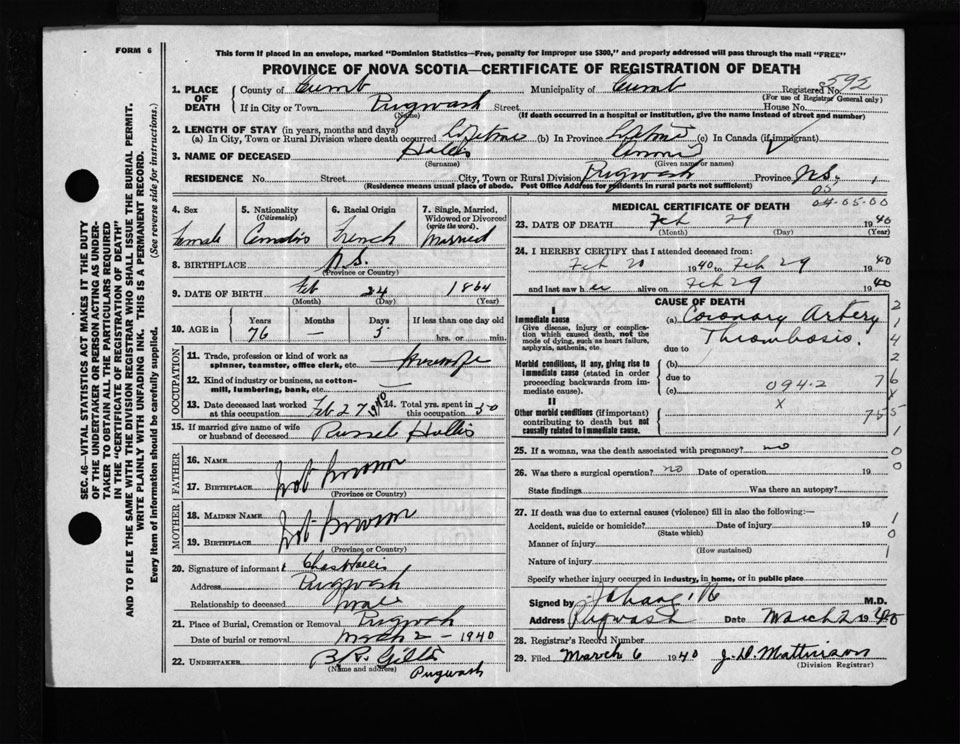 FORM 6
This form if placed in an envelope, marked "Dominion Statistics—Free, penalty for improper use $300," and properly addressed will pass through the mail "FREE"
PROVINCE OF NOVA SCOTIA—CERTIFICATE OF REGISTRATION OF DEATH
1. PLACE OF DEATH County of Cumb Municipality of Cumb Registered No. 592
(For use of Registrar General only)
If in City or Town Pugwash Street House No.
(Name) (If death occurred in a hospital or institution, give the name instead of street and number)
2. LENGTH OF STAY (in years, months and days)
(a) In City, Town or Rural Division where death occurred Lifetime (b) In Province Lifetime (c) In Canada (if immigrant)
3. NAME OF DECEASED Hollis Annie
(Surname) (Given name or names)
RESIDENCE No. Street City, Town or Rural Division Pugwash Province N.S.
(Residence means usual place of abode. Post Office Address for residents in rural parts not sufficient)
05
04-05-00
4. Sex Female
5. Nationality (Citizenship)
6. Racial Origin French
7. Single, Married, Widowed or Divorced (write the word). Married
8. BIRTHPLACE N.S.
(Province or Country)
9. DATE OF BIRTH Feb 24 1864
(Month) (Day) (Year)
10. AGE in Years Months Days If less than one day old
76 — 5 hrs. or min.
OCCUPATION
11. Trade, profession or kind of work as spinner, teamster, office clerk, etc.
12. Kind of industry or business, as cotton-mill, lumbering, bank, etc. —
13. Date deceased last worked at this occupation Feb 27 1940 14. Total yrs. spent in this occupation 50
15. If married give name of wife or husband of deceased Russel Hollis
FATHER
16. NAME
17. BIRTHPLACE Not Known
(Province or Country)
MOTHER
18. MAIDEN NAME
19. BIRTHPLACE Not Known
(Province or Country)
20. Signature of informant Chas Hollis
Address Pugwash
Relationship to deceased
21. Place of Burial, Cremation or Removal Pugwash
Date of burial or removal March 2 - 1940
22. UNDERTAKER
(Name and address) Pugwash
MEDICAL CERTIFICATE OF DEATH
23. DATE OF DEATH Feb 29 1940
(Month) (Day) (Year)
24. I HEREBY CERTIFY that I attended deceased from:
Feb 20 1940 to Feb 29 1940
and last saw her alive on Feb 29 1940
CAUSE OF DEATH
I
Immediate cause (a) Coronary Artery
Give disease, injury or complication which caused death, not the mode of dying, such as heart failure, asphyxia, asthenia, etc.
Thrombosis.
due to
Morbid conditions, if any, giving rise to immediate cause (stated in order proceeding backwards from immediate cause).
(b)
due to
(c) 094-2
X
II
Other morbid conditions (if important) contributing to death but not causally related to immediate cause.
25. If a woman, was the death associated with pregnancy? no
26. Was there a surgical operation? no Date of operation 19
State findings Was there an autopsy?
27. If death was due to external causes (violence) fill in also the following:—
Accident, suicide or homicide? Date of injury 19
(State which)
Manner of injury
(How sustained)
Nature of injury
Specify whether injury occurred in industry, in home, or in public place
Signed by M.D.
Address Pugwash Date March 2 1940
28. Registrar's Record Number
29. Filed March 6 1940 J. D. Mattinson
(Division Registrar)
SEC. 46—VITAL STATISTICS ACT MAKES IT THE DUTY
OF THE UNDERTAKER OR PERSON ACTING AS UNDER-
TAKER TO OBTAIN ALL THE PARTICULARS REQUIRED
IN THE "CERTIFICATE OF REGISTRATION OF DEATH"
AND TO FILE THE SAME WITH THE DIVISION REGISTRAR WHO SHALL ISSUE THE BURIAL PERMIT.
WRITE PLAINLY WITH UNFADING INK. THIS IS A PERMANENT RECORD.
Every item of information should be carefully supplied. (See reverse side for instructions.)